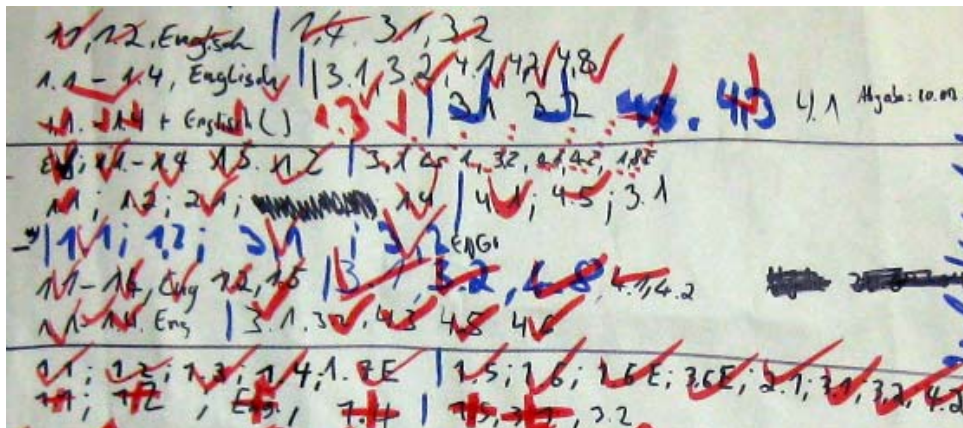 1.1, 1.2, Englisch | 1.4. 3.1, 3.2
1.1 - 1.4, Englisch | 3.1, 3.2, 4.1, 4.2, 4.8
1.1. - 1.4 + English () 1.3 | 3.1 3.2 4.8. 4.3 4.1 Abgabe: 20.
1.1 - 1.4 1.3. 1.2 | 3,1 3.2, 4.2, 1.8E
1.1; 1.2; 2.1; 1.4 | 4.1; 4.5; 3.1
| 1.1; 1.2; 3.1; 3.2 ENGl
1.1 - 1.4, Eng 1.2, 1.5 | 3.1, 3.2, 4.8, 4.1, 4.2
1.1 - 1.4. Eng | 3.1. 3.2, 4.3 4.5 4.6
1.1; 1.2; 1.3; 1.4; 1.8E | 1.5; 1.6; 1.6E; 3.6E; 2.1; 3.1; 3.2, 4.2
1.1; 1.2, Eng., 1.4 | 1.5, 3.1, 3.2